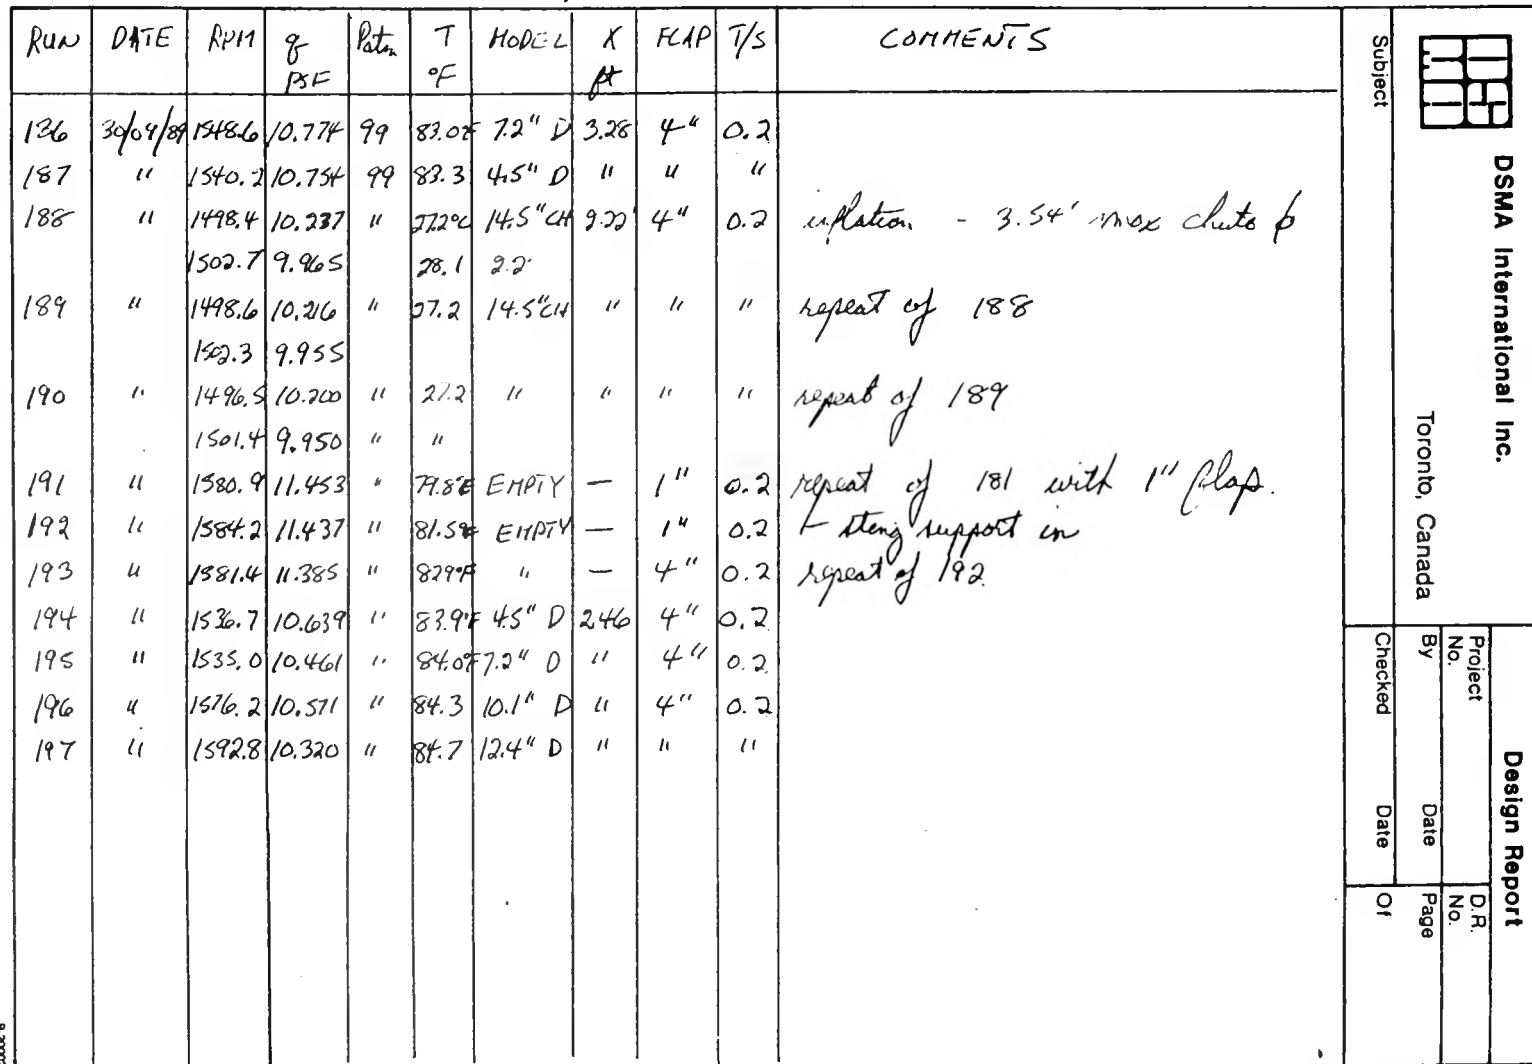 RUN DATE RPM q PSF Patm T °F MODEL X ft FLAP T/S COMMENTS
136 30/04/89 1548.6 10.774 99 83.0F 7.2" D 3.28 4" 0.2
187 " 1540.2 10.754 99 83.3 4.5" D " " "
188 " 1498.4 10.237 " 27.2°C 14.5"CH 9.22' 4" 0.2 inflation - 3.54' max chute ϕ
1502.7 9.965 28.1 2.2
189 " 1498.6 10.216 " 27.2 14.5"CH " " " repeat of 188
1502.3 9.955
190 " 1496.5 10.200 " 27.2 " " " " repeat of 189
1501.4 9.950 " "
191 " 1580.9 11.453 " 79.8F EMPTY — 1" 0.2 repeat of 181 with 1" flap.
192 " 1584.2 11.437 " 81.5°F EMPTY — 1" 0.2 - sting support in
193 " 1581.4 11.385 " 82.9°F " — 4" 0.2 repeat of 192
194 " 1536.7 10.639 " 83.9°F 4.5" D 2.46 4" 0.2
195 " 1535.0 10.461 " 84.0F 7.2" D " 4" 0.2
196 " 1576.2 10.571 " 84.3 10.1" D " 4" 0.2
197 " 1592.8 10.320 " 84.7 12.4" D " " "
DSMA
DSMA International Inc.
Toronto, Canada
Subject
Design Report
Project No.
D.R. No.
By Date Page
Checked Date Of